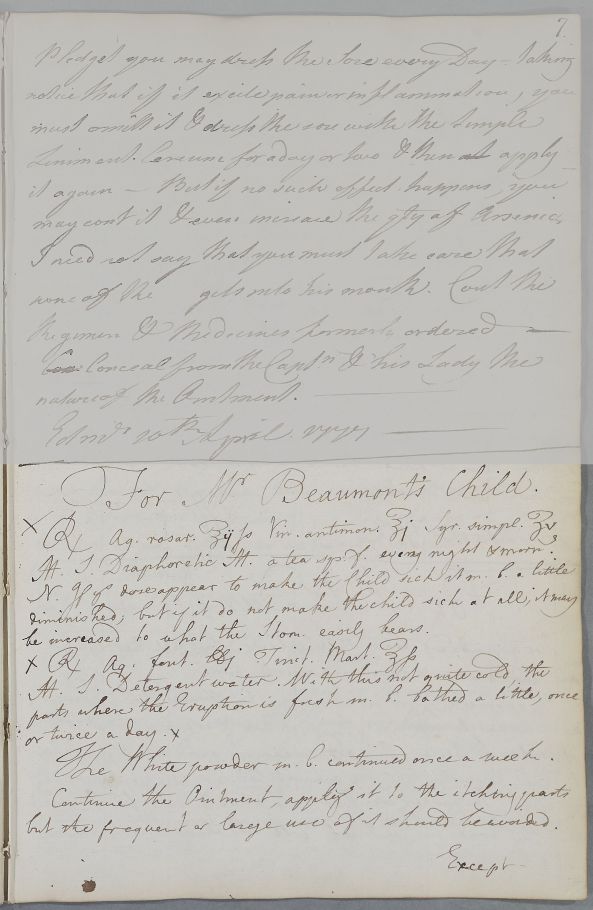 7.
Pledget you may dress the sore every Day – taking
notice that if it excite pain or inflammation, you
must omitt it & dress the sore with the simple
Liniment. Cereum for a day or two & then at apply
it again – But if no such effect happens, you
may cont it & even increace the qty of Arsenic,
I need not say that you must take care that
none of the gets into his mouth. Cont the
Regimen & Medicines formerly ordered —
Conceal from the Captn & his Lady the
nature of the Ointment. —
Edinr 10th April. 1777 —
For Mr Beaumont's Child.
x ℞ Aq. rosar. ℥ijſs Vin. antimon. ʒj Syr. simpl. ʒv
M. S. Diaphoretic M. a tea sp. f. every night & morn.
N. If ys dose appear to make the Child sick it m. b. a little
diminished; but if it do not make the child sick at all, it may
be increased to what the Stom. easily bears.
x ℞ Aq. font. ℔j Tinct. Mart. ʒſs
M. S. Detergent water. With this not quite cold, the
parts where the Eruption is fresh m. b. bathed a little, once
or twice a day. x
The White powder m. b. continued once a week.
Continue the Ointment, applyg it to the itching parts
but the frequent or large use of it should be avoided.
Except